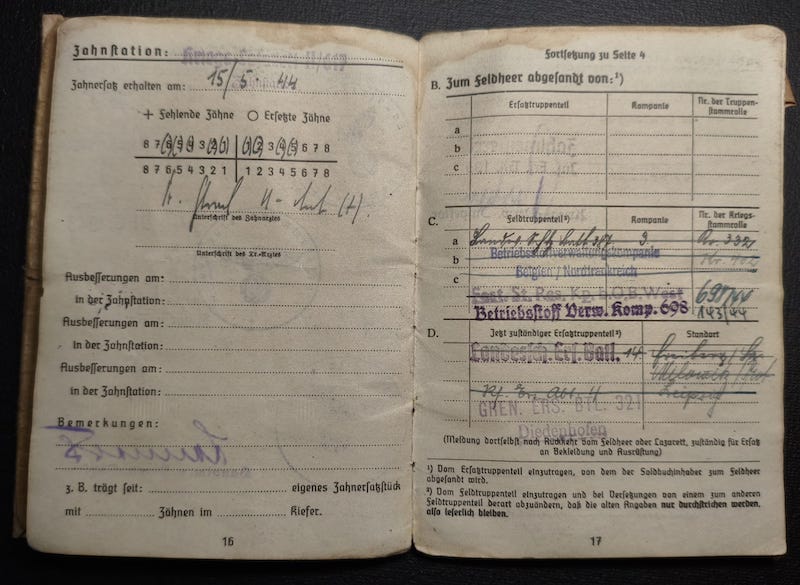 Zahnstation:
Zahnersatz erhalten am: 15/5. 44
+ Fehlende Zähne O Ersetzte Zähne
8 7 6 5 4 3 2 1 1 2 3 4 5 6 7 8
8 7 6 5 4 3 2 1 1 2 3 4 5 6 7 8
Unterschrift des Zahnarztes
Unterschrift des Tr.-Arztes
Ausbesserungen am:
in der Zahnstation:
Ausbesserungen am:
in der Zahnstation:
Ausbesserungen am:
in der Zahnstation:
Bemerkungen:
z. B. trägt seit: eigenes Zahnersatzstück
mit Zähnen im Kiefer.
16
Fortsetzung zu Seite 4
B. Zum Feldheer abgesandt von:¹)
Ersatztruppenteil Kompanie Nr. der Truppen-
stammrolle
a
b
c
C. Feldtruppenteil²) Kompanie Nr. der Kriegs-
stammrolle
a 3. Nr. 332
b Betriebsstoffverwaltungskompanie
Belgien / Nordfrankreich
c 698/44
Betriebsstoff Verw. Komp. 698 143/44
D. Jetzt zuständiger Ersatztruppenteil²) Standort
Landessch. Ers. Batl. 14 Freiberg/Sa
Leipzig
GREN. ERS. BTL. 321
Diedenhofen
(Meldung dortselbst nach Rückkehr vom Feldheer oder Lazarett, zuständig für Ersatz
an Bekleidung und Ausrüstung)
¹) Vom Ersatztruppenteil einzutragen, von dem der Soldbuchinhaber zum Feldheer
abgesandt wird.
²) Vom Feldtruppenteil einzutragen und bei Versetzungen von einem zum anderen
Feldtruppenteil derart abzuändern, daß die alten Angaben nur durchstrichen werden,
also leserlich bleiben.
17